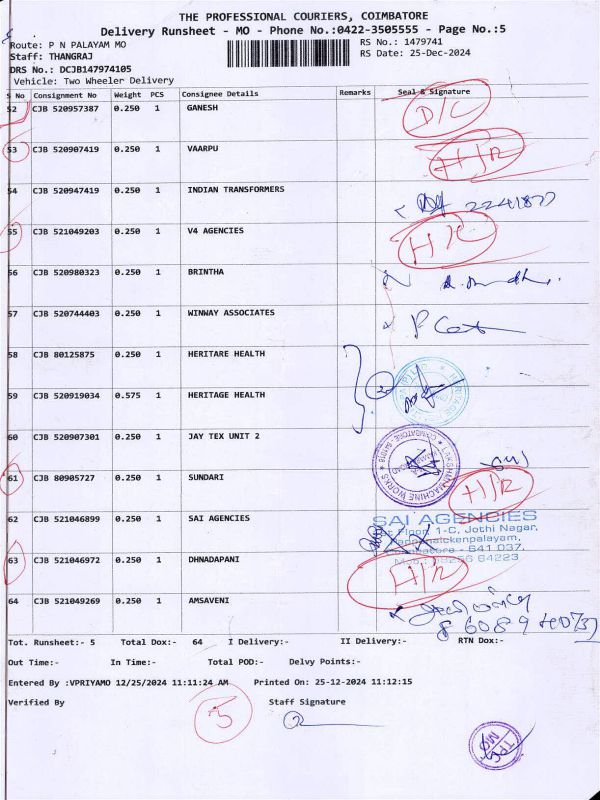 THE PROFESSIONAL COURIERS, COIMBATORE
Delivery Runsheet - MO - Phone No.:0422-3505555 - Page No.:5
Route: P N PALAYAM MO RS No.: 1479741
Staff: THANGRAJ RS Date: 25-Dec-2024
DRS No.: DCJB147974105
Vehicle: Two Wheeler Delivery
S No Consignment No Weight PCS Consignee Details Remarks Seal & Signature
52 CJB 520957387 0.250 1 GANESH D/C
53 CJB 520907419 0.250 1 VAARPU H/R
54 CJB 520947419 0.250 1 INDIAN TRANSFORMERS
55 CJB 521049203 0.250 1 V4 AGENCIES H/R
56 CJB 520980323 0.250 1 BRINTHA
57 CJB 520744403 0.250 1 WINWAY ASSOCIATES
58 CJB 80125875 0.250 1 HERITARE HEALTH
59 CJB 520919034 0.575 1 HERITAGE HEALTH
60 CJB 520907301 0.250 1 JAY TEX UNIT 2
LAKSHMI MACHINE WORKS
61 CJB 80905727 0.250 1 SUNDARI H/R
62 CJB 521046899 0.250 1 SAI AGENCIES
SAI AGENCIES
Floor, 1-C, Jothi Nagar,
641 037.
64223
63 CJB 521046972 0.250 1 DHNADAPANI H/R
64 CJB 521049269 0.250 1 AMSAVENI
Tot. Runsheet:- 5 Total Dox:- 64 I Delivery:- II Delivery:- RTN Dox:-
Out Time:- In Time:- Total POD:- Delvy Points:-
Entered By :VPRIYAMO 12/25/2024 11:11:24 AM Printed On: 25-12-2024 11:12:15
Verified By Staff Signature
5
TPC
MO